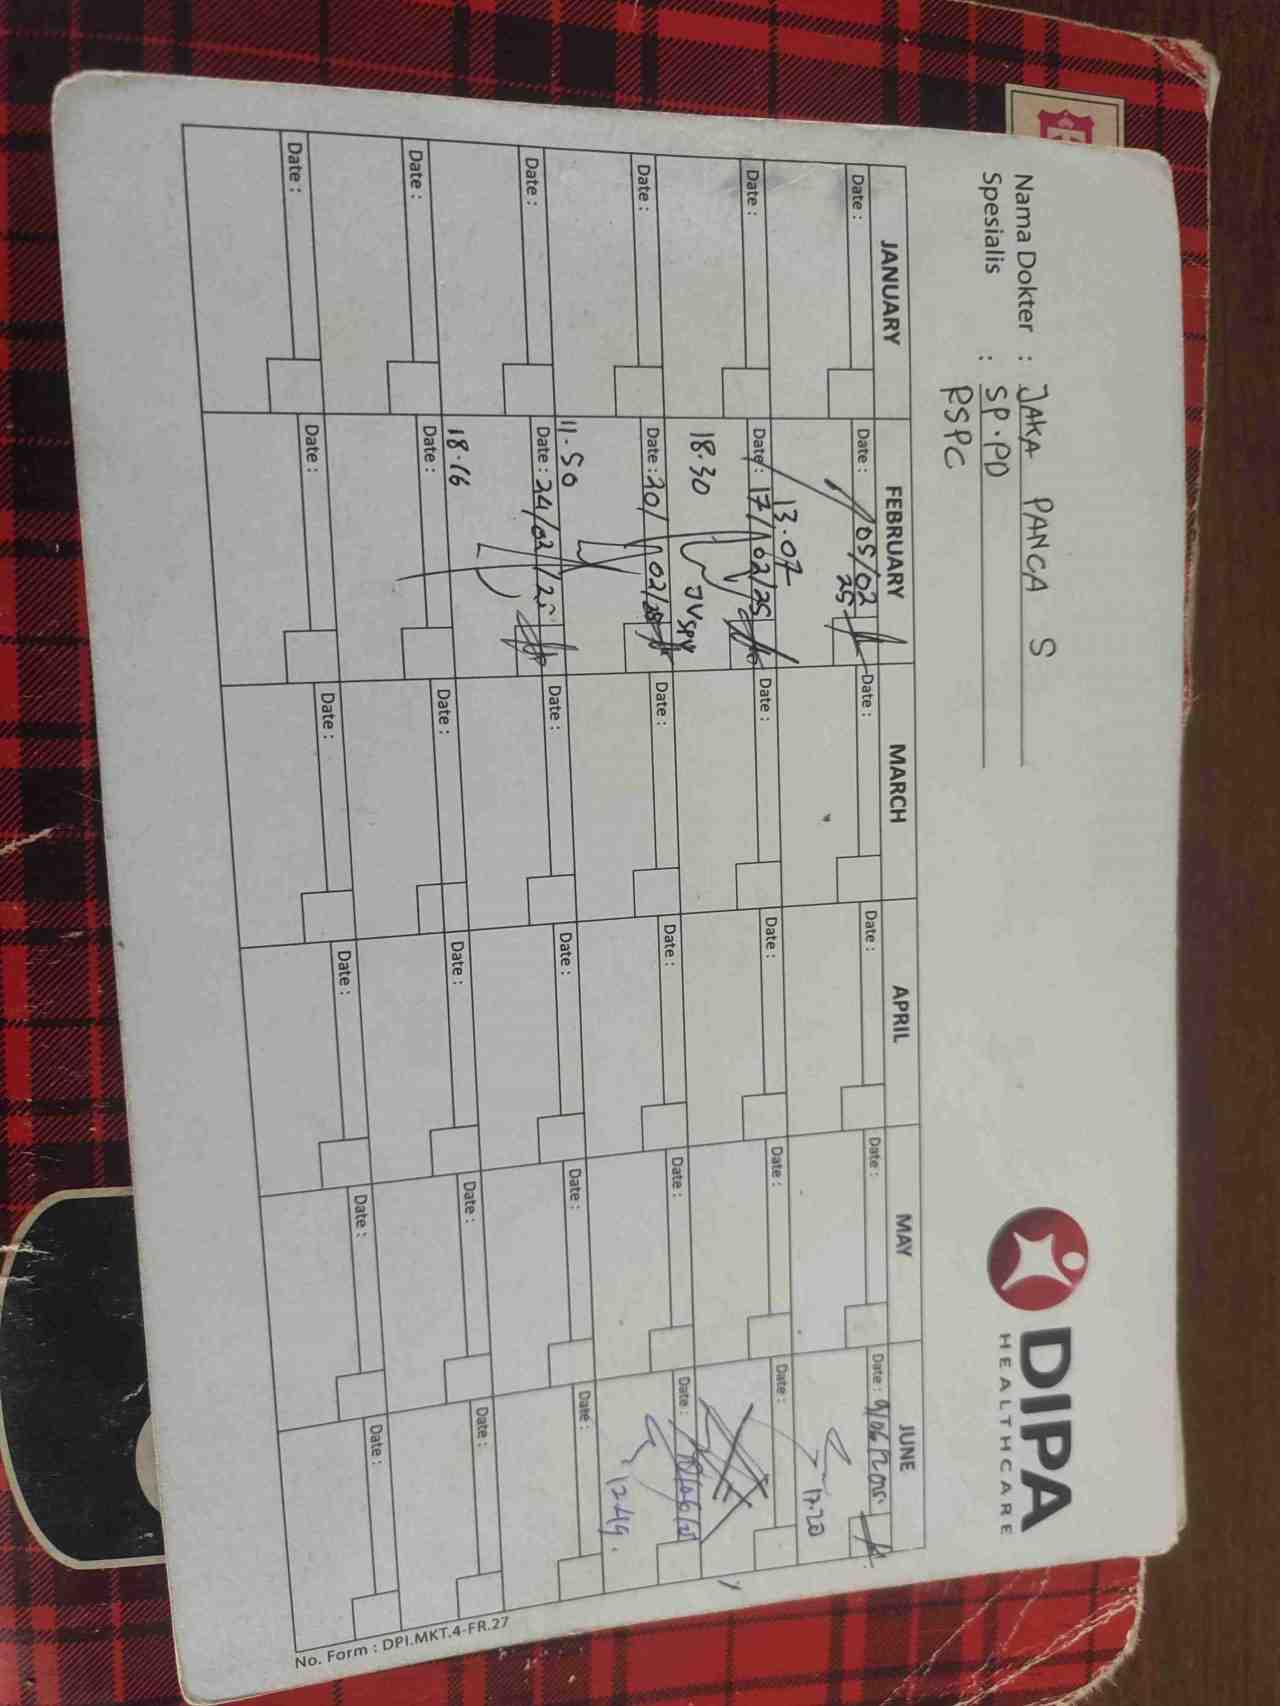 Nama Dokter : JAKA PANCA S
Spesialis : SP.PD
RSPC
DIPA
HEALTHCARE
JANUARY FEBRUARY MARCH APRIL MAY JUNE
Date : Date : 05/02 25 Date : Date : Date : Date : 9/06/2025
13.07 17.20
Date : Date : 17/02/25 Date : Date : Date : Date :
18.30
Date : Date : 20/02/25 Date : Date : Date : Date :
11.50 12.49
Date : Date : 24/02/25 Date : Date : Date : Date :
18.16
Date : Date : Date : Date : Date : Date :
Date : Date : Date : Date : Date : Date :
No. Form : DPI.MKT.4-FR.27